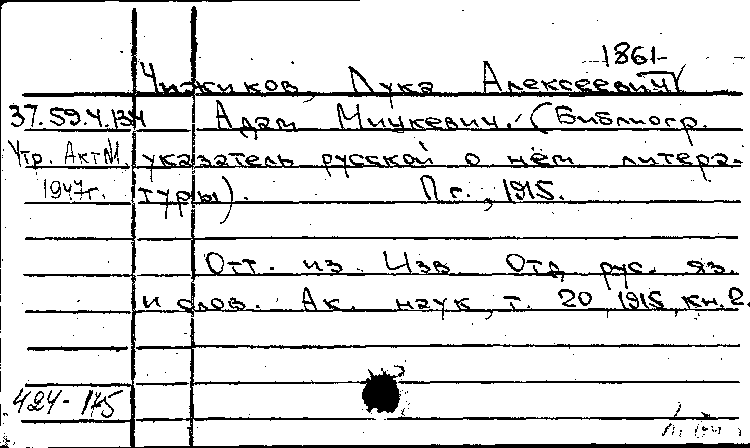 1861-
Чижиков, Лука Алексеевич
37.59.4.134 Адам Мицкевич. (Библиогр.
Утр. Акт №1, указатель русской о нём литера-
1947г. туры). Пг., 1915.
Отт. из Изв. Отд. рус. яз.
и слов. Ак. наук, т. 20, 1915, кн. 2.
424-175